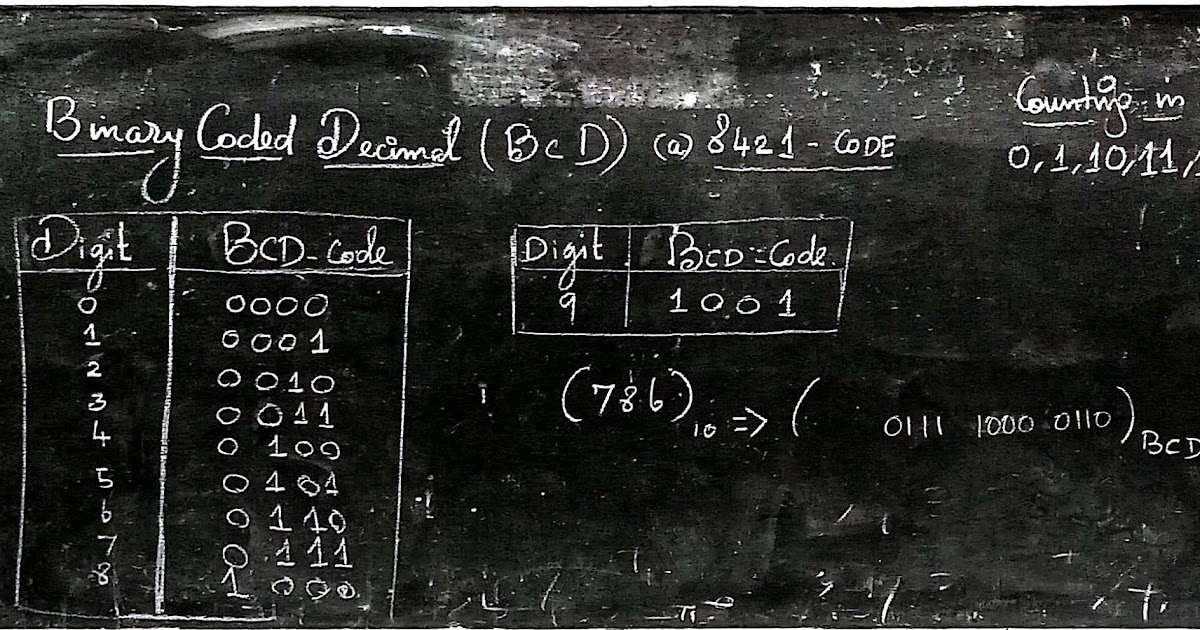 Binary Coded Decimal (BCD) (a) 8421 - CODE
Counting in
0, 1, 10, 11,
Digit BCD-Code
0 0000
1 0001
2 0010
3 0011
4 0100
5 0101
6 0110
7 0111
8 1000
Digit BCD-Code
9 1001
(786)10 => ( 0111 1000 0110)BCD